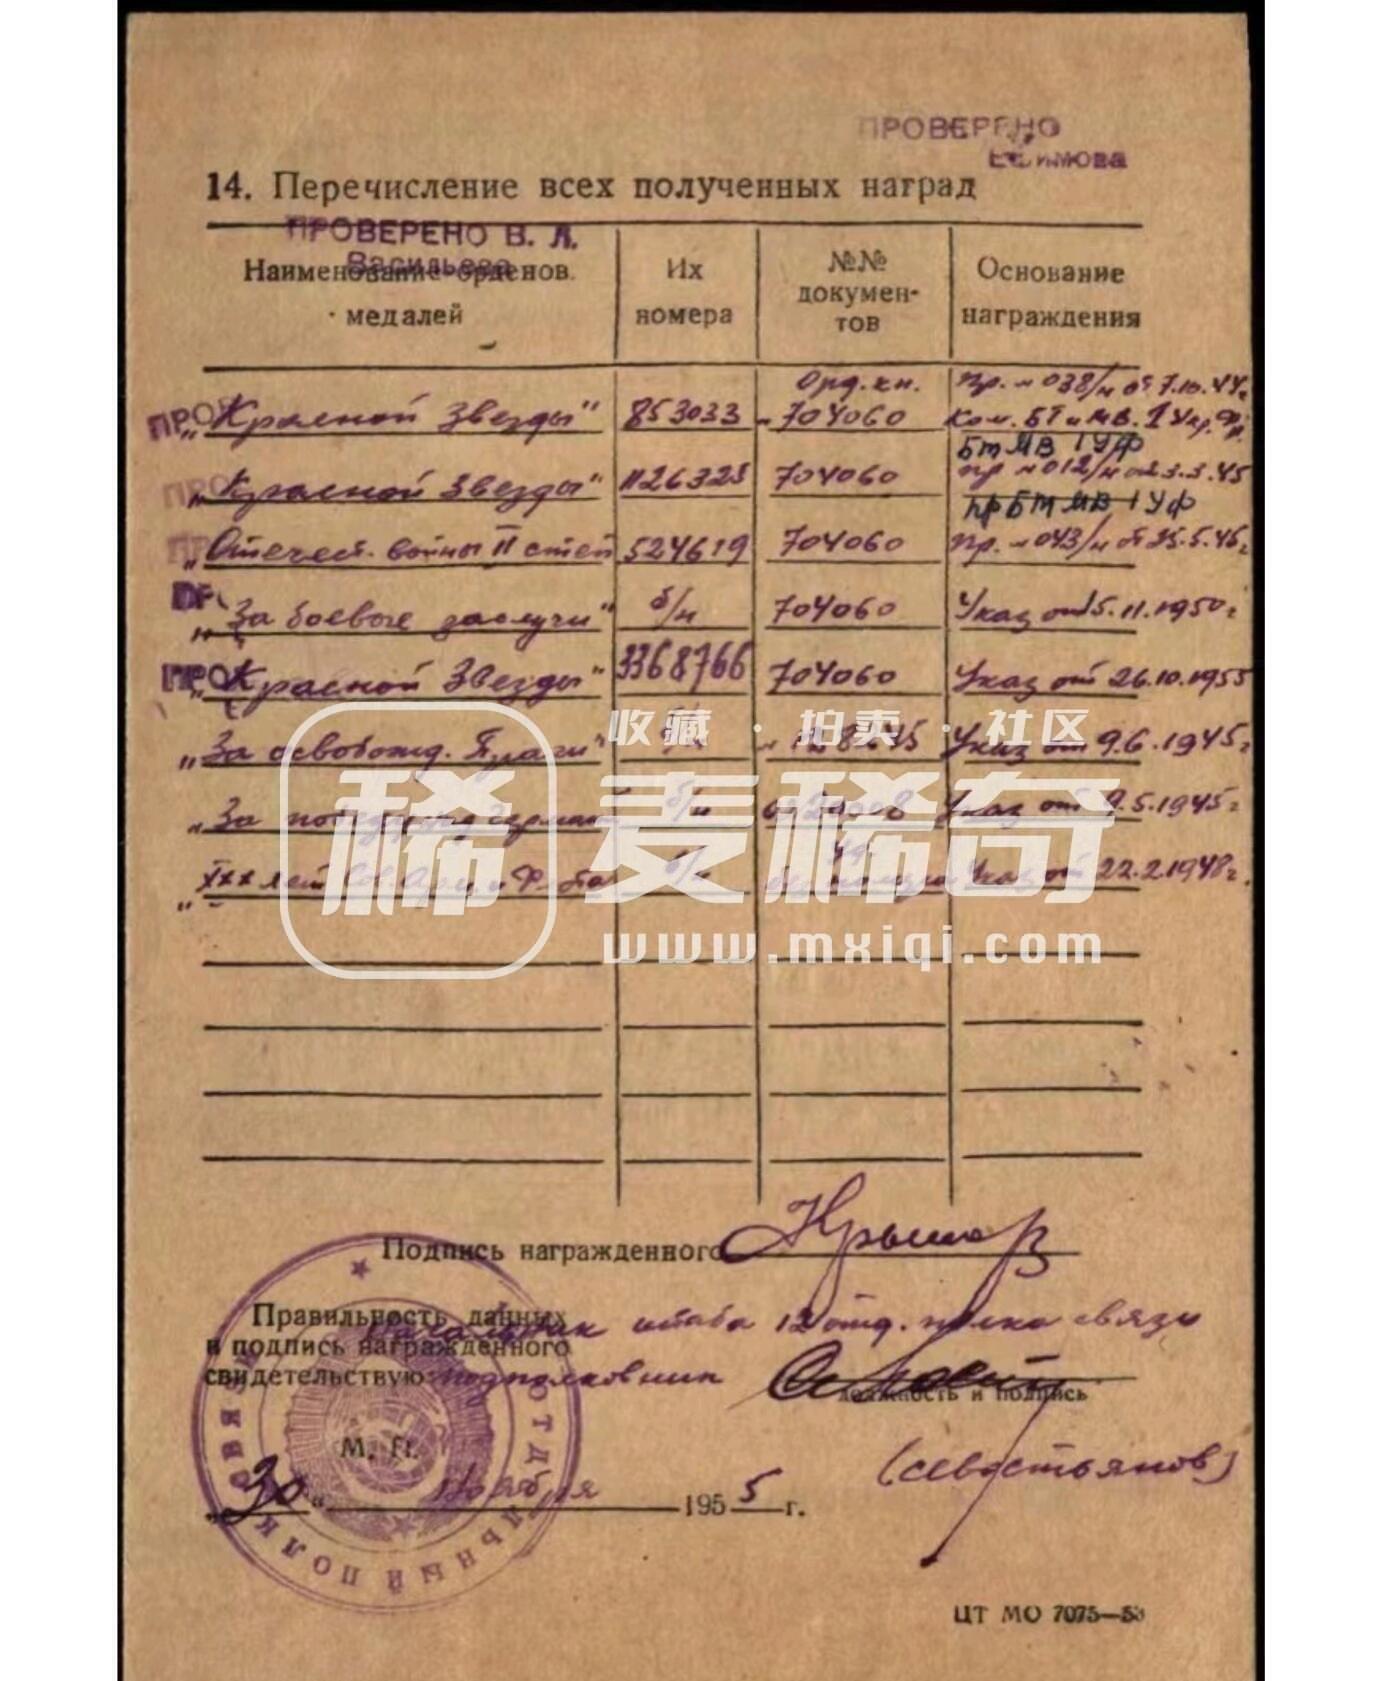 ПРОВЕРЕНО
Ефимова
14. Перечисление всех полученных наград
ПРОВЕРЕНО В. Л.
Васильева
Наименование орденов
медалей
Их
номера
№№
докумен-
тов
Основание
награждения
„Красной Звезды" 853033 Орд. кн. 704060 Пр. № 038/н от 7.10.44г. Ком. БТ и МВ. 1 Укр. Фр.
БТ МВ 1 УФ
„Красной Звезды" 1126325 704060 пр № 012/н от 3.3.45
пр БТ МВ 1 УФ
„Отечест. войны II степ 524619 704060 Пр. № 043/н от 25.5.45г
„За боевые заслуги" б/н 704060 Указ от 15.11.1950г
„Красной Звезды" 3368766 704060 Указ от 26.10.1955
„За освобожд. Праги" Указ от 9.6.1945г
„За победу над б/н Указ от 9.5.1945г
„XXX лет Сов. Арм. и Ф-та б/н Указ от 22.2.1948г.
收藏 · 拍卖 · 社区
稀 麦稀奇
www.mxiqi.com
Подпись награжденного
Правильность данных
и подпись награжденного
свидетельствую:
начальник штаба 12 отд. полка связи
подполковник
должность и подпись
(Севостьянов)
М. П.
„30" ноября 1955 г.
ОТДЕЛЬНЫЙ ПОЛК СВЯЗИ
ЦТ МО 7075—53